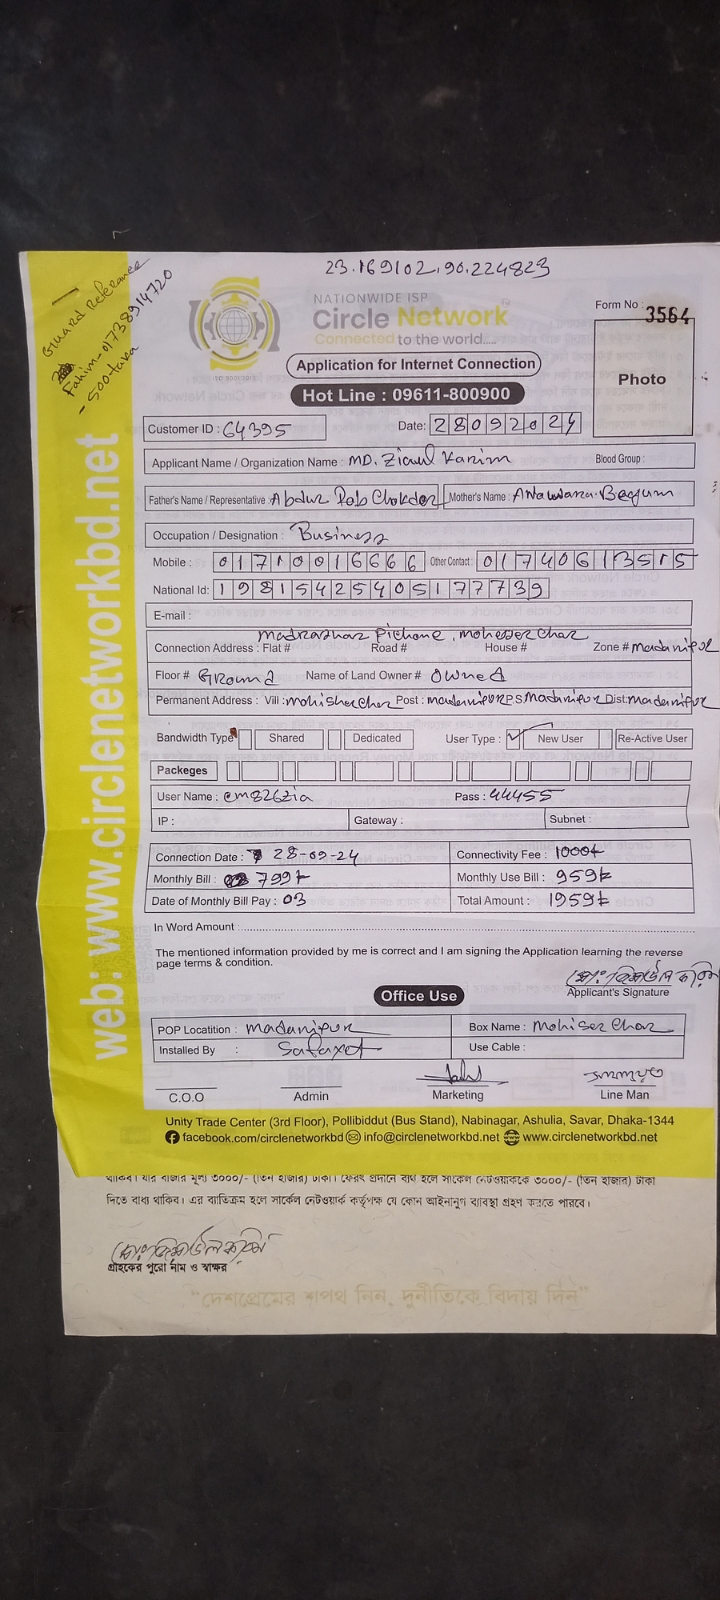 23.169102,90.224823
Guard Referance
Fahim-01738914720
- 500 taka
NATIONWIDE ISP
Circle Network
Connected to the world.....
Form No : 3564
Application for Internet Connection
Photo
Hot Line : 09611-800900
Customer ID : 64395 Date: 28092024
Applicant Name / Organization Name : MD. Ziaul Karim Blood Group :
Father's Name / Representative : Abdur Rob Chokder Mother's Name : Anawara Begum
Occupation / Designation : Business
Mobile : 01710016666 Other Contact : 01740613515
National Id: 19815425405177739
E-mail :
Madrashar Pichone, moheser char
Connection Address : Flat # Road # House # Zone # madaripur
Floor # Ground Name of Land Owner # Owned
Permanent Address : Vill : mohisherchar Post : madaripur P.S Madaripur Dist: madaripur
Bandwidth Type Shared Dedicated User Type : New User Re-Active User
Packeges
User Name : cm826zia Pass : 44455
IP : Gateway : Subnet :
Connection Date : 28-09-24 Connectivity Fee : 1000/-
Monthly Bill : 799/- Monthly Use Bill : 959/-
Date of Monthly Bill Pay : 03 Total Amount : 1959/-
In Word Amount :
The mentioned information provided by me is correct and I am signing the Application learning the reverse
page terms & condition.
Applicant's Signature
Office Use
POP Locatition : Madaripur Box Name : Mohiser Char
Installed By : Use Cable :
C.O.O Admin Marketing Line Man
Unity Trade Center (3rd Floor), Pollibiddut (Bus Stand), Nabinagar, Ashulia, Savar, Dhaka-1344
facebook.com/circlenetworkbd info@circlenetworkbd.net www.circlenetworkbd.net
web: www.circlenetworkbd.net
থাকিব। যার বাজার মূল্য ৩০০০/- (তিন হাজার) টাকা। ফেরৎ প্রদানে ব্যর্থ হলে সার্কেল নেটওয়ার্ককে ৩০০০/- (তিন হাজার) টাকা
দিতে বাধ্য থাকিব। এর ব্যতিক্রম হলে সার্কেল নেটওয়ার্ক কর্তৃপক্ষ যে কোন আইনানুগ ব্যবস্থা গ্রহণ করতে পারবে।
গ্রাহকের পুরো নাম ও স্বাক্ষর
"দেশপ্রেমের শপথ নিন, দুর্নীতিকে বিদায় দিন"